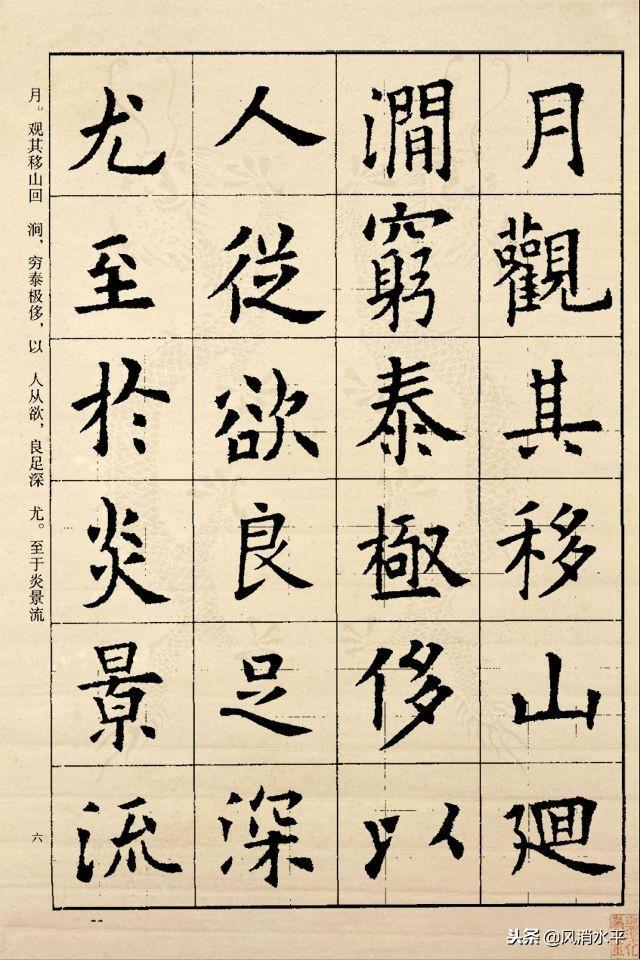 月觀其移山迴
澗窮泰極侈以
人從欲良足深
尤至於炎景流
月。观其移山回 涧，穷泰极侈，以 人从欲，良足深 尤。至于炎景流
六
头条 @风消水平